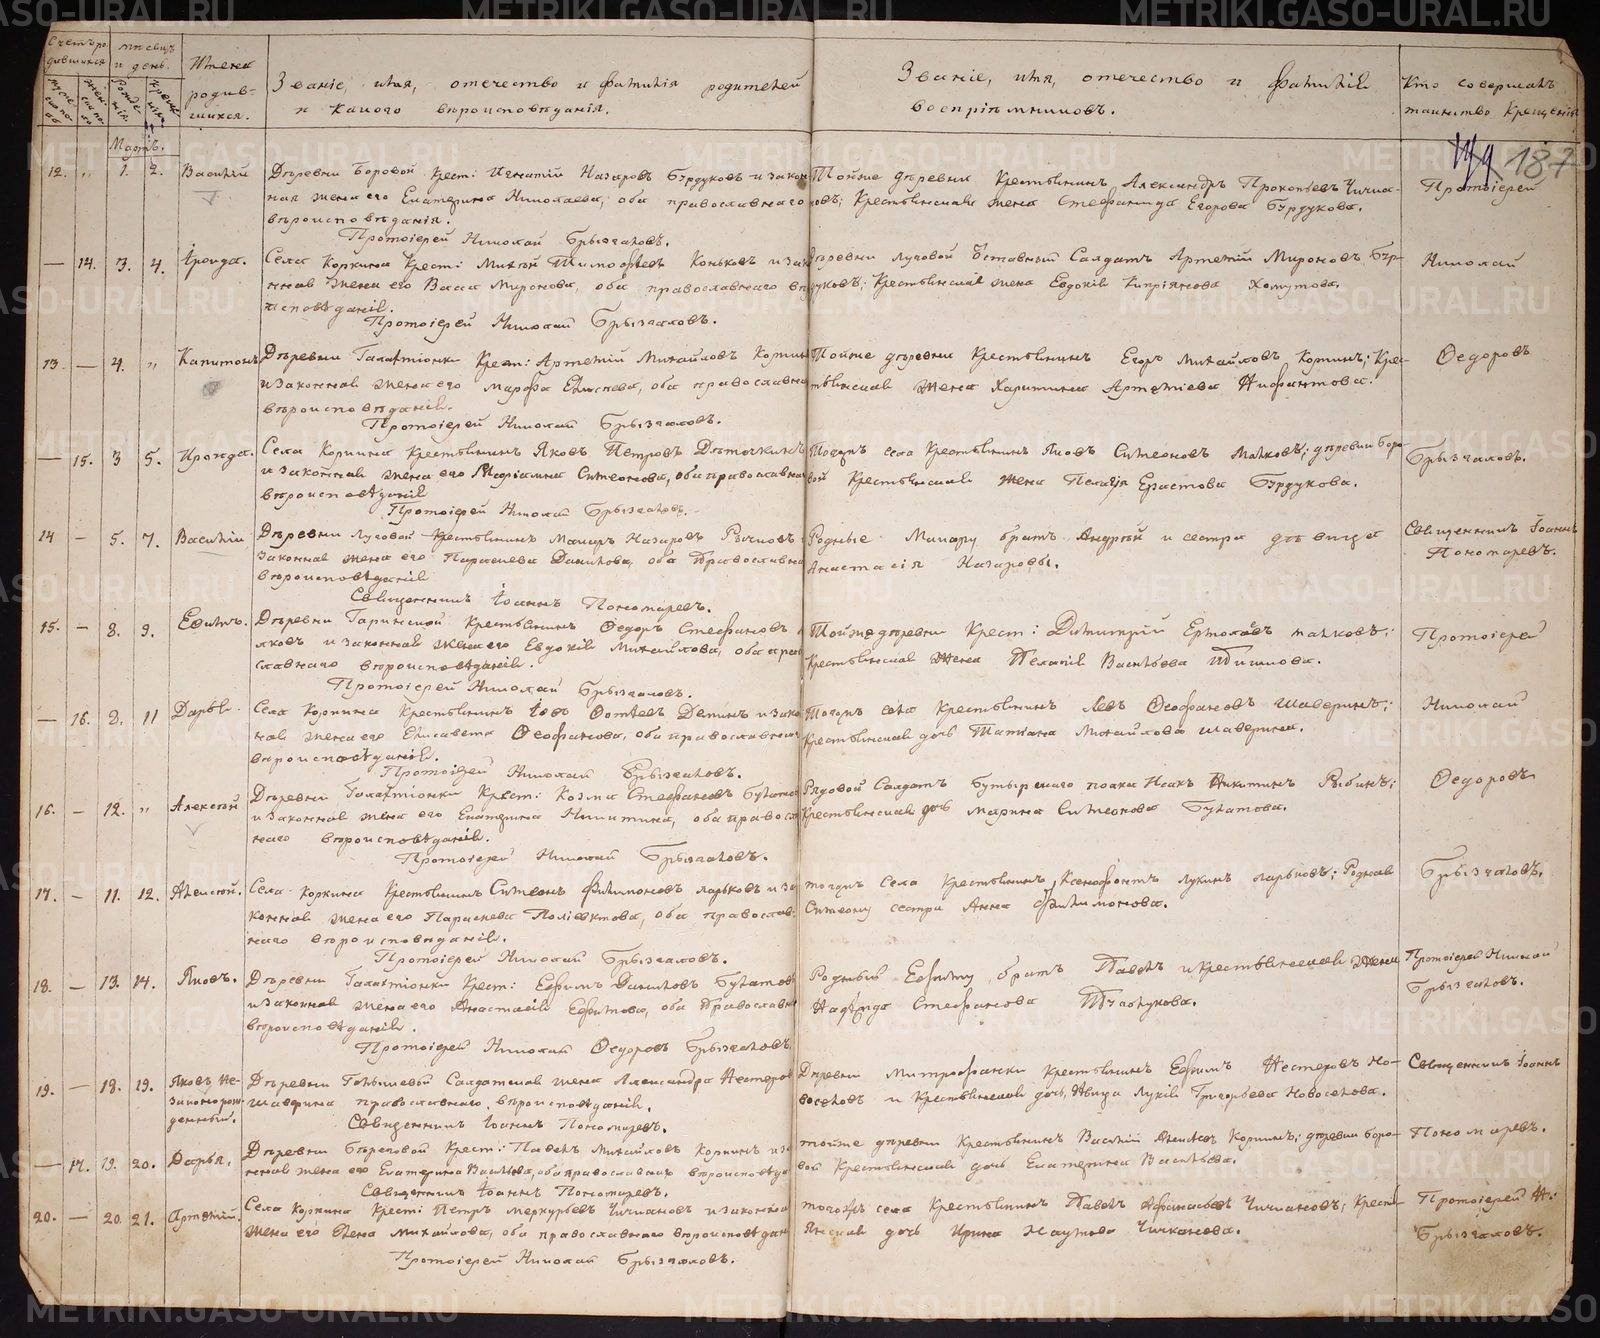 Счетъ родившихся
Мѣсяцъ и день.
Имена родившихся.
Званіе, имя, отечество и фамилія родителей
и какого вѣроисповѣданія.
Званіе, имя, отечество и фамилія
воспріѣмниковъ.
Кто совершалъ
таинство Крещенія
Мартъ.
187
12. „ 1. 2. Василій
Дѣревни Боровой Крест: Игнатій Назаровъ Бурдуковъ и закон
ная жена его Екатерина Николаева, оба православнаго
вѣроисповѣданія.
Протоіерей Николай Брызгаловъ.
Тойже дѣревни Крестьянинъ Александръ Прокопьевъ Чичка-
новъ; Крестьянская жена Стефанида Егорова Бурдукова.
Протоіерей
— 14. 3. 4. Ираида.
Села Коркина Крест: Михѣй Тимофѣев Коньков и зак
нная жена его Васса Миронова, оба православнаго вѣро
исповѣданія.
Протоіерей Николай Брызгаловъ.
Дѣревни Луговой Отставный Солдатъ Артемій Мироновъ Бур-
дуковъ; Крестьянская жена Евдокія Кипріянова Хомутова.
Николай
13. — 4. „ Капитонъ
Дѣревни Галактіонки Крест: Артемій Михайловъ Коркин
и законная жена его Марфа Елисеева, оба православна
вѣроисповѣданія.
Протоіерей Николай Брызгаловъ.
Тойже дѣревни Крестьянинъ Егоръ Михайловъ Коркинъ; Крес-
тьянская жена Харитина Артеміева Нифантова.
Ѳедоровъ
— 15. 3 5. Ираида.
Села Коркина Крестьянинъ Яковъ Петровъ Дѣточкинъ
и законная жена его Маріамна Симеонова, оба православна
вѣроисповѣданія
Протоіерей Николай Брызгаловъ.
Тогожъ села Крестьянинъ Яковъ Симеоновъ Малковъ; дѣревни Боро-
вой Крестьянская жена Пелагія Ерастова Бурдукова.
Брызгаловъ.
14 — 5. 7. Василій
Дѣревни Луговой Крестьянинъ Макаръ Назаровъ Рычков
законная жена его Параскева Данилова, оба Православна
вѣроисповѣданія
Священникъ Іоаннъ Пономаревъ.
Родные Макару братъ Андрѣй и сестра дѣвица
Анастасія Назаровы.
Священникъ Іоаннъ
Пономаревъ.
15. — 8. 9. Евѳимъ.
Дѣревни Гаринской Крестьянинъ Ѳедоръ Стефановъ
лковъ и законная жена его Евдокія Михайлова, оба пра
славнаго вѣроисповѣданія.
Протоіерей Николай Брызгаловъ.
Тойже дѣревни Крест: Димитрій Ермолаевъ Малковъ;
Крестьянская жена Пелагія Васильева
Протоіерей
— 16. 2. 11 Дарья.
Села Коркина Крестьянинъ Іовъ Фотѣевъ Деминъ и зако
ная жена его Елисавета Ѳеофанова, оба православнаго
вѣроисповѣданія.
Протоіерей Николай Брызгаловъ.
Тогожъ села Крестьянинъ Левъ Ѳеофановъ Шаверинъ;
Крестьянская дочь Татіана Михайлова Шаверина.
Николай
16. — 12. „ Алексѣй
Дѣревни Галактіонки Крест: Козма Стефановъ Булатов
и законная жена его Екатерина Никитина, оба правосл
наго вѣроисповѣданія.
Протоіерей Николай Брызгаловъ.
Рядовой Солдатъ Бутырскаго полка Исакъ Никитинъ Рыбинъ;
Крестьянская дочь Марина Симеонова Булатова.
Ѳедоровъ
17. — 11. 12. Алексѣй.
Села Коркина Крестьянинъ Симеонъ Филимоновъ Ларьковъ и за
конная жена его Параскева Поліевктова, оба православ-
наго вѣроисповѣданія.
Протоіерей Николай Брызгаловъ.
тогожъ Села Крестьянинъ Ксенофонтъ Лукинъ Ларьковъ; Родная
Симеону сестра Анна Филимонова.
Брызгаловъ.
18. — 13. 14. Яковъ.
Дѣревни Галактіонки Крест: Ефимъ Даниловъ Булатов
и законная жена его Анастасія Ефимова, оба Православн
вѣроисповѣданія.
Протоіерей Николай Ѳедоровъ Брызгаловъ.
Родный Ефиму братъ Павелъ и крестьянская жена
Надежда Стефанова
Протоіерей Николай
Брызгаловъ.
19. — 18. 19. Яковъ Не-
законорож-
денный.
Дѣревни Голышевой Солдатская жена Александра Нестеров
Шаврина православнаго вѣроисповѣданія.
Священникъ Іоаннъ Пономаревъ.
Дѣревни Митрофанки Крестьянинъ Ефимъ Нестеровъ Но-
воселовъ и Крестьянская дочь, дѣвица Лукія Григорьева Новоселова.
Священникъ Іоаннъ
— 17. 19. 20. Дарья.
Дѣревни Береговой Крест: Павелъ Михайловъ Коркинъ и за
конная жена его Екатерина Васильева, оба православныхъ вѣроисповѣда
Священникъ Іоаннъ Пономаревъ.
тойже дѣревни Крестьянинъ Василій Алексѣев Коркинъ; дѣревни Боро-
вой Крестьянская дочь Екатерина Васильева.
Пономаревъ.
20. — 20. 21. Артемій.
Села Коркина Крест: Петръ Меркурьевъ Чичкановъ и законная
жена его Елена Михайлова, оба православнаго вѣроисповѣдан
Протоіерей Николай Брызгаловъ.
тогожъ села Крестьянинъ Павелъ Афанасьевъ Чичкановъ; Крест-
янская дочь Ирина Наумова Чичканова.
Протоіерей Н.
Брызгаловъ.
METRIKI.GASO-URAL.RU